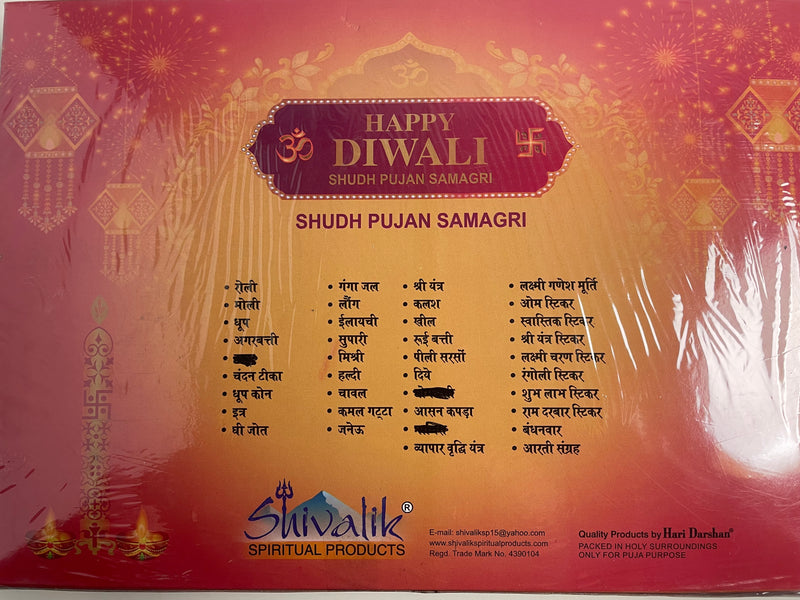 ॐ
HAPPY
DIWALI
SHUDH PUJAN SAMAGRI
SHUDH PUJAN SAMAGRI
• रोली
• मोली
• धूप
• अगरबत्ती
•
• चंदन टीका
• धूप कोन
• इत्र
• घी जोत
• गंगा जल
• लौंग
• ईलायची
• सुपारी
• मिश्री
• हल्दी
• चावल
• कमल गट्टा
• जनेऊ
• श्री यंत्र
• कलश
• खील
• रुई बत्ती
• पीली सरसों
• दिये
•
• आसन कपड़ा
•
• व्यापार वृद्धि यंत्र
• लक्ष्मी गणेश मूर्ति
• ओम स्टिकर
• स्वास्तिक स्टिकर
• श्री यंत्र स्टिकर
• लक्ष्मी चरण स्टिकर
• रंगोली स्टिकर
• शुभ लाभ स्टिकर
• राम दरबार स्टिकर
• बंधनवार
• आरती संग्रह
Shivalik®
SPIRITUAL PRODUCTS
E-mail: shivaliksp15@yahoo.com
www.shivalikspiritualproducts.com
Regd. Trade Mark No. 4390104
Quality Products by Hari Darshan®
PACKED IN HOLY SURROUNDINGS
ONLY FOR PUJA PURPOSE